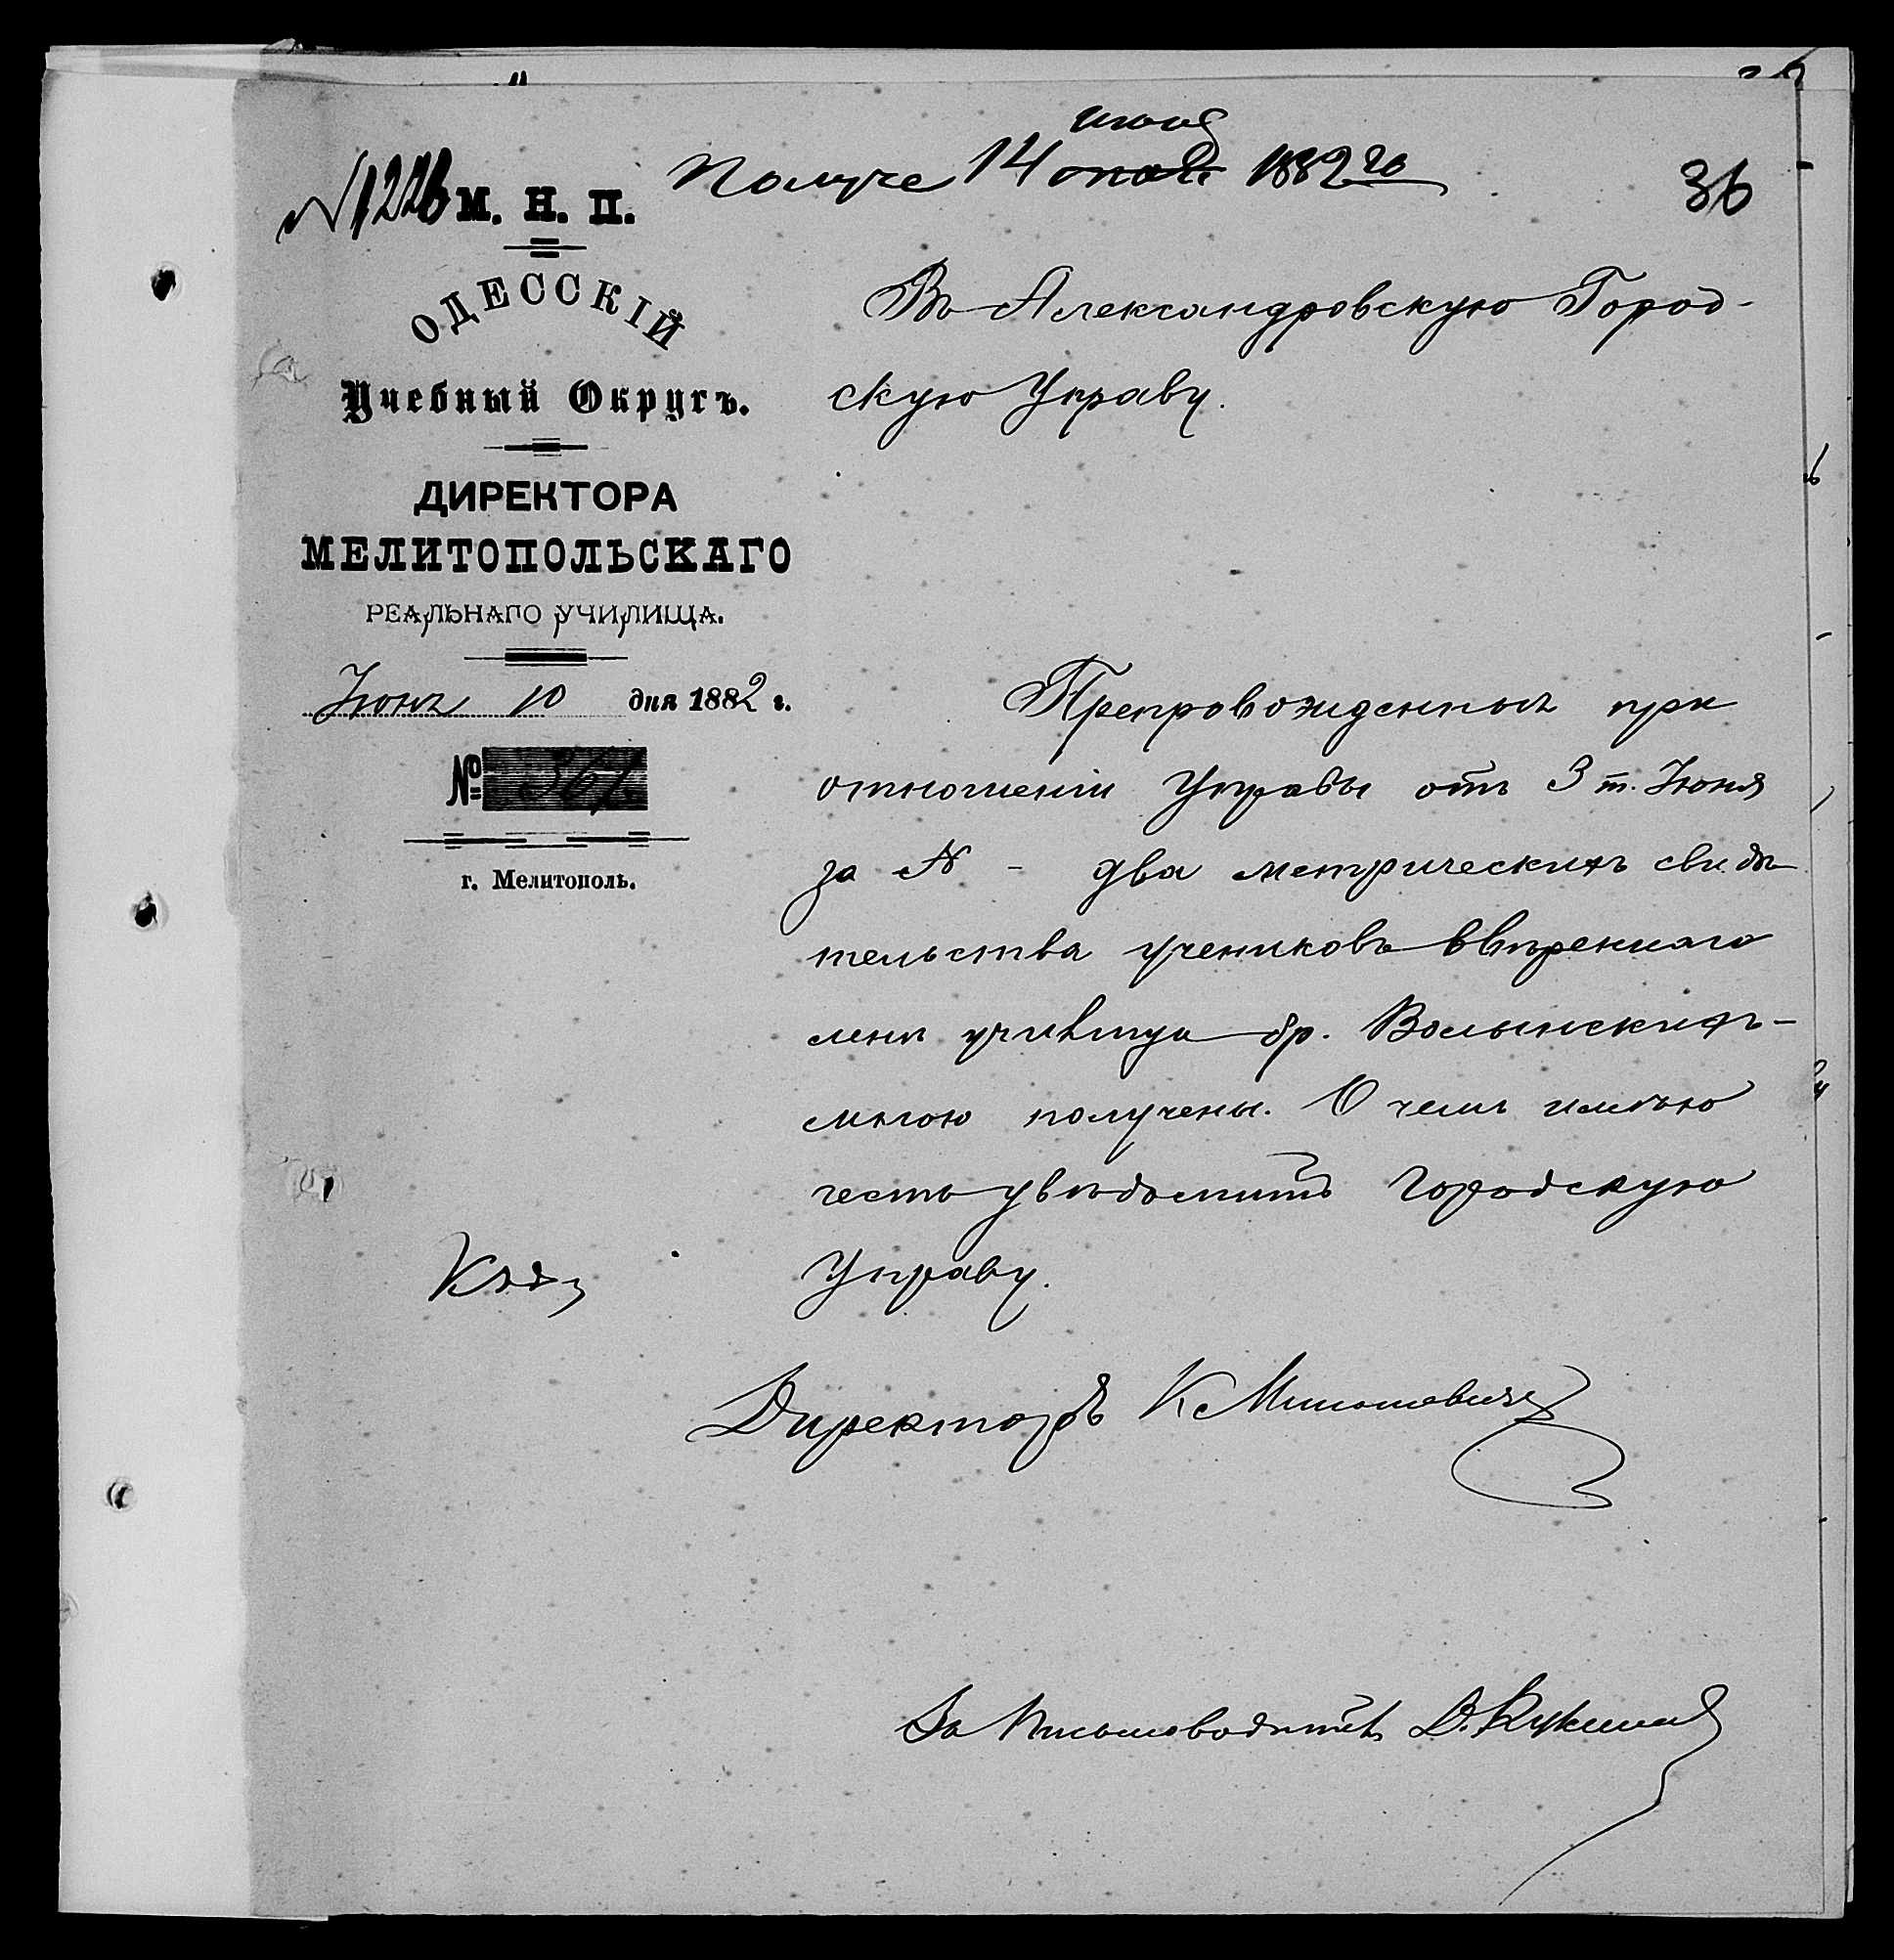 Получе 14 июня 1882 го
№ 1226
36
М. Н. П.
ОДЕССКІЙ
Учебный Округъ.
ДИРЕКТОРА
МЕЛИТОПОЛЬСКАГО
РЕАЛЬНАГО УЧИЛИЩА.
Іюня 10 дня 1882 г.
№ 367
г. Мелитополь.
Въ Александровскую Город-
скую Управу.
Препровожденныя при
отношеніи Управы отъ 3 т. Іюня
за № - два метрическихъ свидѣ-
тельства учениковъ ввѣреннаго
мнѣ училища бр. Волынскихъ-
мною получены. О чемъ имѣю
честь увѣдомить Городскую
Управу.
Директоръ К
За Письмоводителя Д.